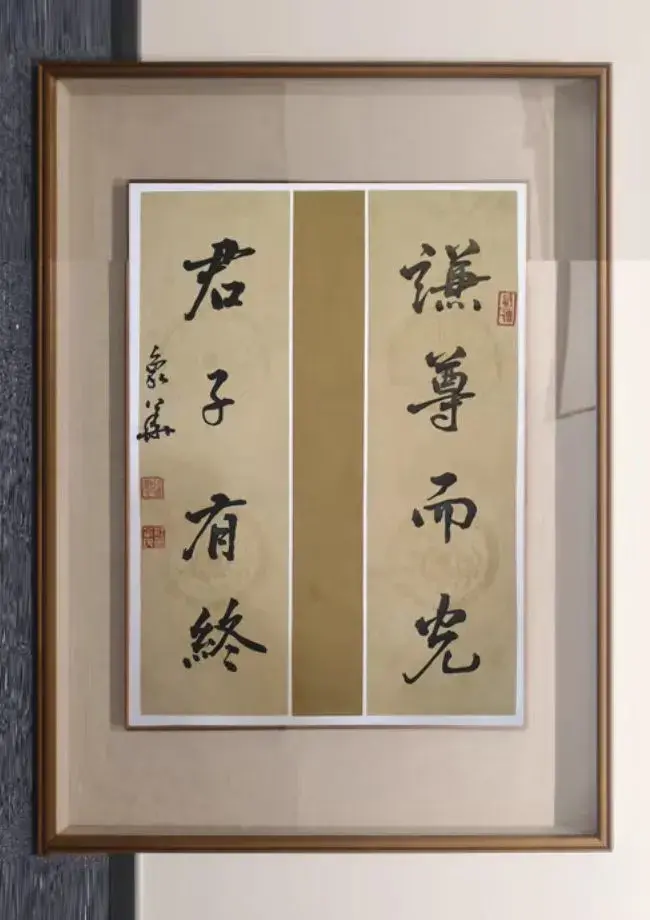 謙尊而光
君子有終